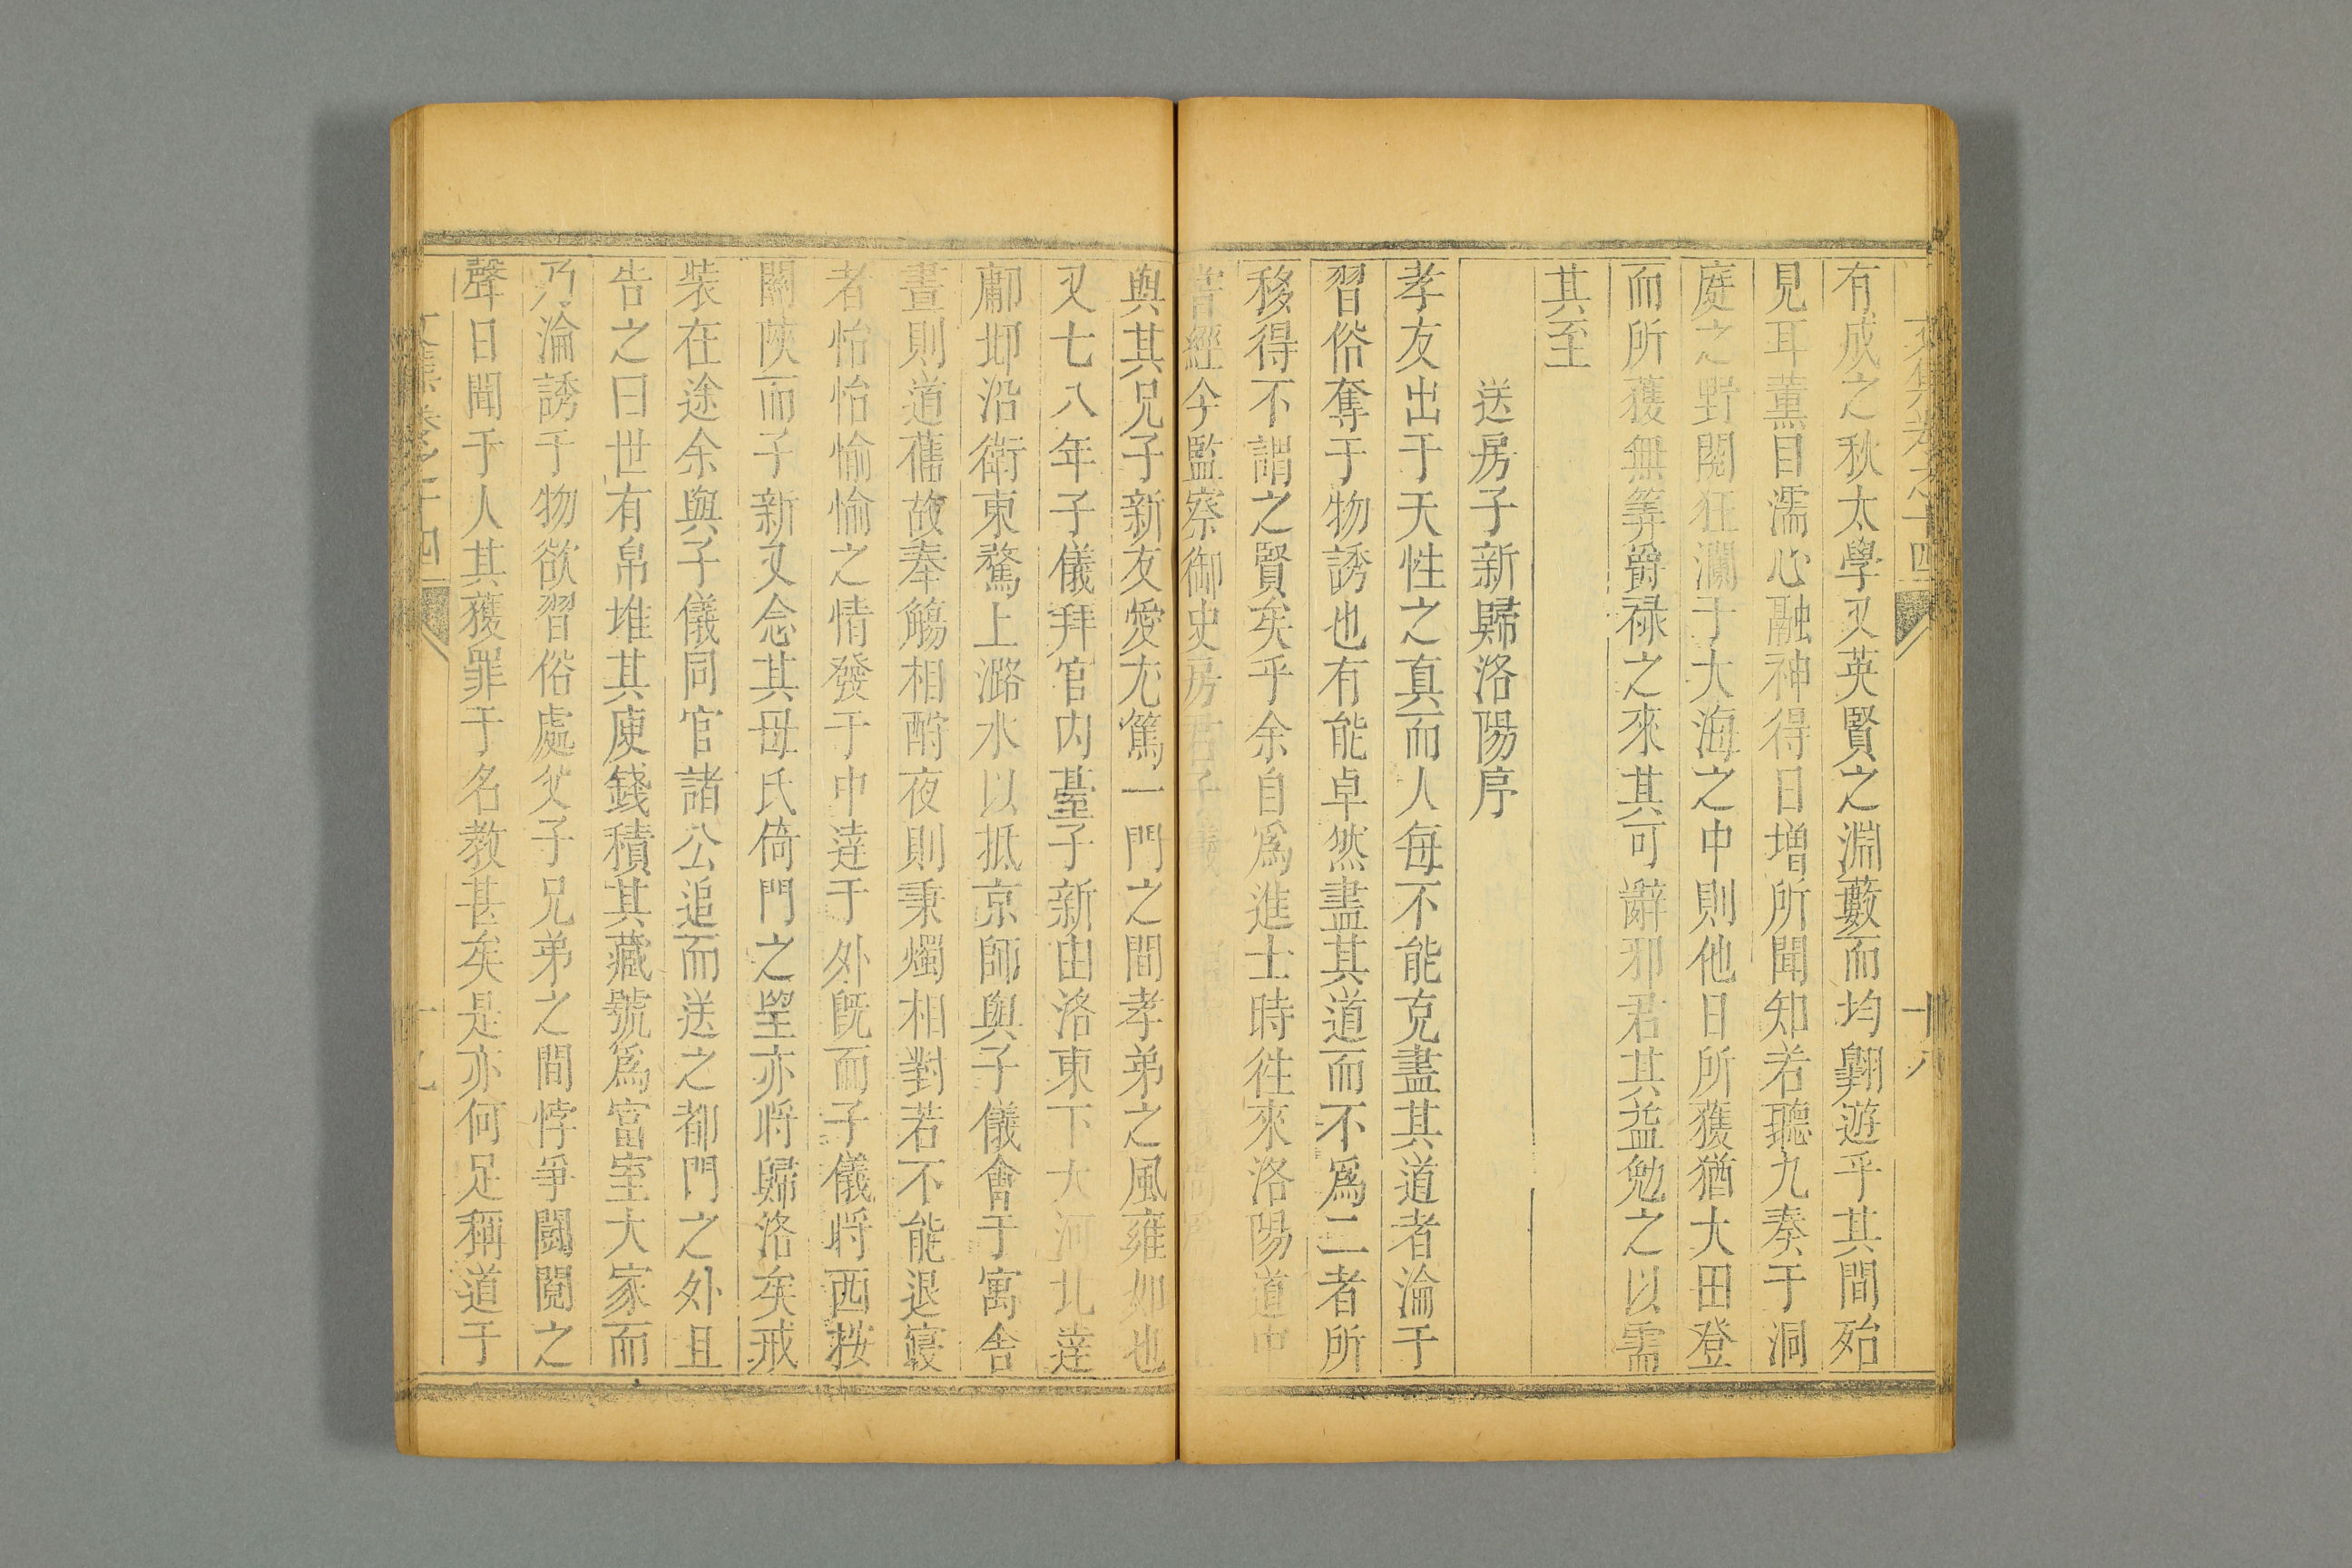 文集卷之十四 十八
有成之秋太學又英賢之淵藪而均翺遊乎其間殆
見耳薰目濡心融神得日增所聞知若聽九奏于洞
庭之野閱狂瀾于大海之中則他日所獲猶大田登
而所獲無筭爵祿之來其可辭邪君其益勉之以需
其至
送房子新歸洛陽序
孝友出于天性之真而人每不能克盡其道者淪于
習俗奪于物誘也有能卓然盡其道而不爲二者所
移得不謂之賢矣乎余自爲進士時徃來洛陽道中
甞經今監察御史房君子儀
與其兄子新友愛尤篤一門之間孝弟之風雍如也
又七八年子儀拜官内臺子新由洛東下大河北達
鄘邶沿衛東騖上潞水以抵京師與子儀會于寓舍
晝則道舊故奉觴相酧夜則秉燭相對若不能退寢
者怡怡愉愉之情發于中達于外旣而子儀將西按
關陝而子新又念其母氏倚門之望亦將歸洛矣戒
裝在途余與子儀同官諸公追而送之都門之外且
告之曰世有帛堆其庾錢積其藏號爲富室大家而
乃淪誘于物欲習俗處父子兄弟之間悖爭鬪鬩之
聲日聞于人其獲罪于名教甚矣是亦何足稱道于
文集卷之十四 十九